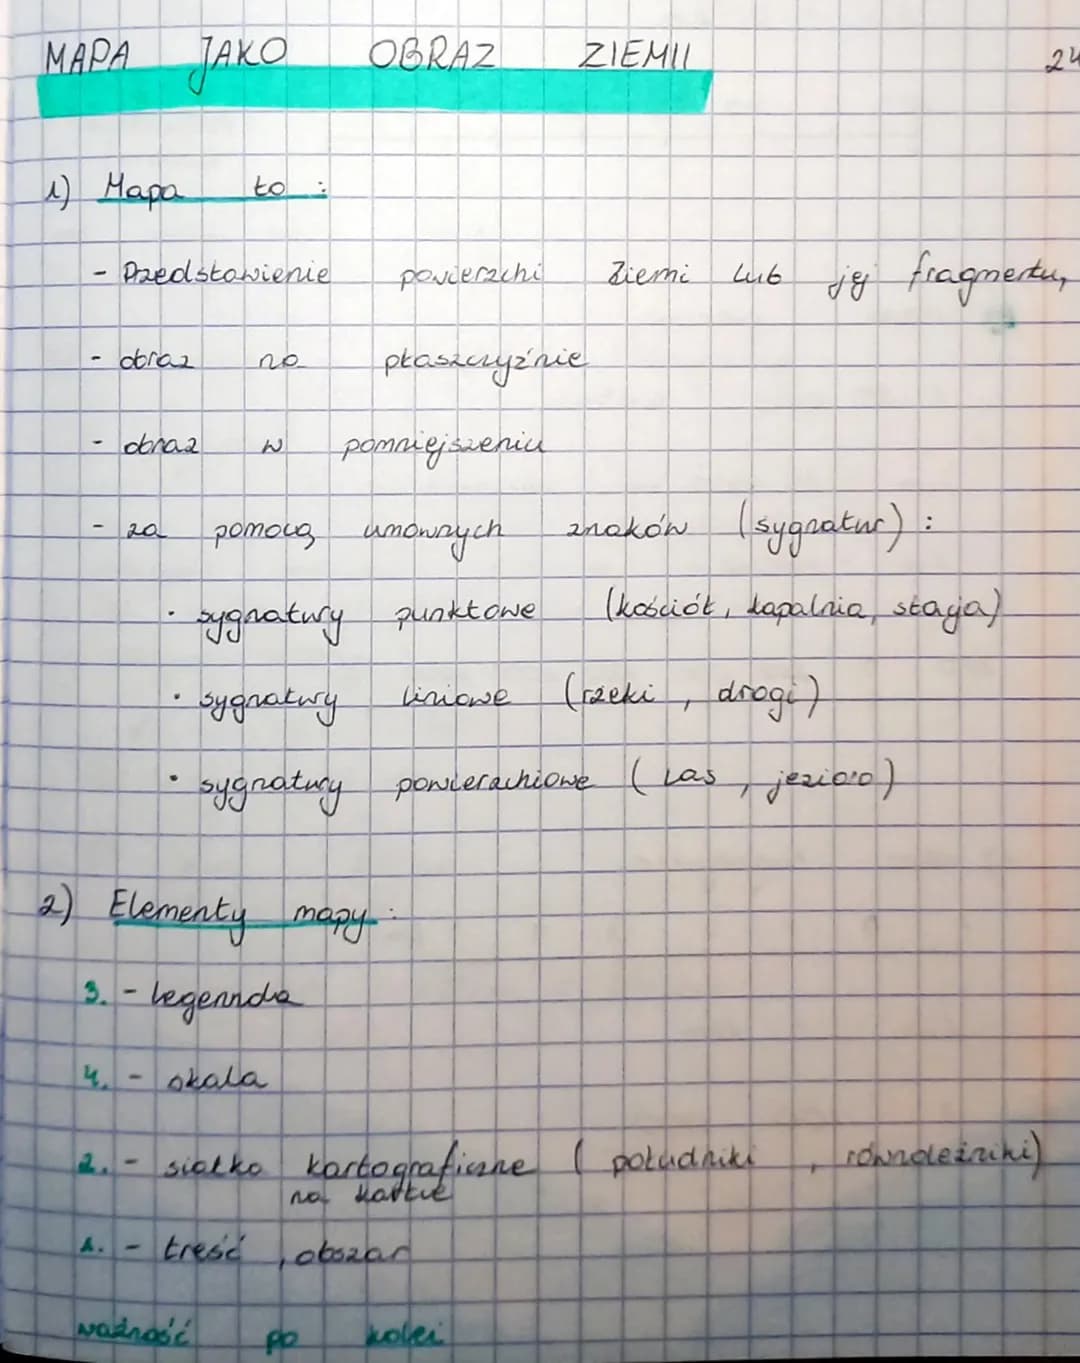 MAPA JAKO OBRAZ ZIEMII 24
1) Mapa to :
- Przedstawienie powierzchi Ziemi lub jej fragmentu,
- obraz na płaszczyźnie
- obraz w pomniejszeniu
- za pomocą umownych znaków (sygnatur) :
· sygnatury punktowe (kościół, kapalnia, stacja)
· sygnatury liniowe (rzeki , drogi)
· sygnatury powierzchiowe ( las , jezioro)
2) Elementy mapy :
3. - legennda
4. - skala
2. - siatka kartograficzne ( południki , równoleżniki)
na kartce
1. - treść , obszar
ważność po kolei